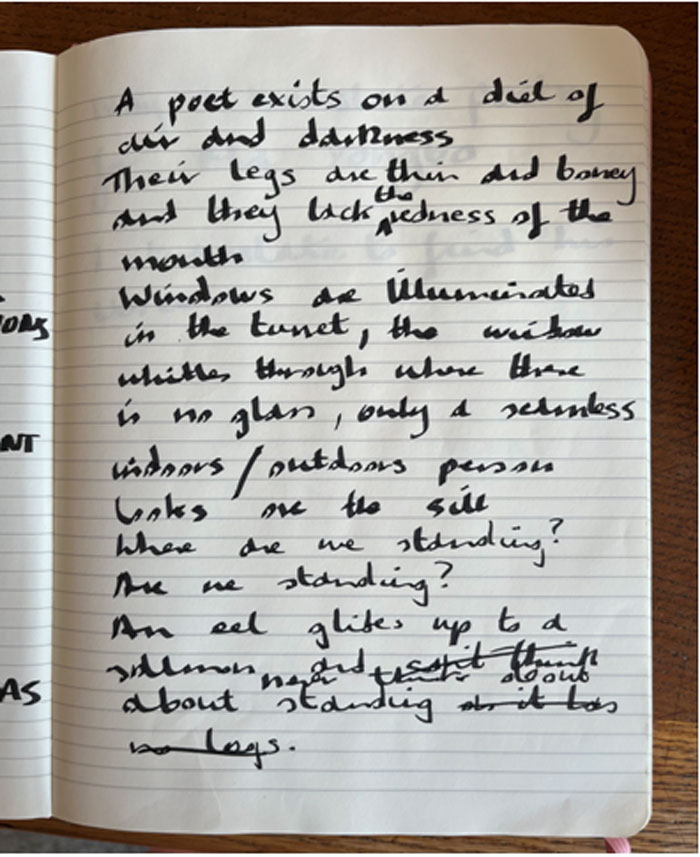 A poet exists on a diet of
air and darkness
Their legs are thin and boney
and they lack the redness of the
mouth
Windows are illuminated
in the turret, the window
whittles through where there
is no glass, only a seamless
indoors / outdoors person
looks the sill
Where are we standing?
Are we standing?
An eel glides up to a
salmon and think
never thinks about
about standing as it has
no legs.
NT
AS